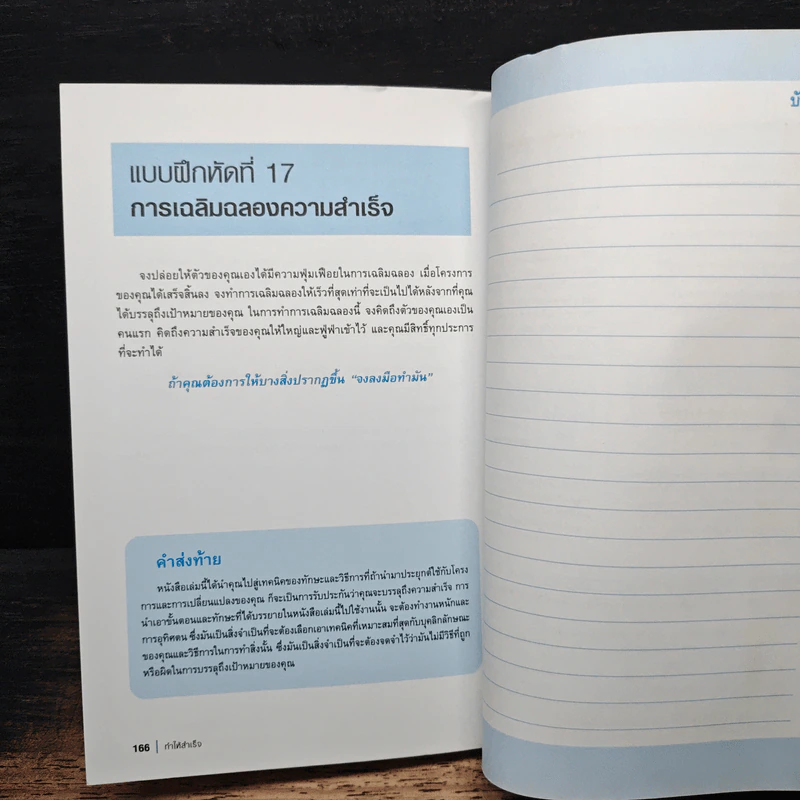 แบบฝึกหัดที่ 17
การเฉลิมฉลองความสำเร็จ
จงปล่อยให้ตัวของคุณเองได้มีความฟุ่มเฟือยในการเฉลิมฉลอง เมื่อโครงการ
ของคุณได้เสร็จสิ้นลง จงทำการเฉลิมฉลองให้เร็วที่สุดเท่าที่จะเป็นไปได้หลังจากที่คุณ
ได้บรรลุถึงเป้าหมายของคุณ ในการทำการเฉลิมฉลองนี้ จงคิดถึงตัวของคุณเองเป็น
คนแรก คิดถึงความสำเร็จของคุณให้ใหญ่และฟู่ฟ่าเข้าไว้ และคุณมีสิทธิ์ทุกประการ
ที่จะทำได้
ถ้าคุณต้องการให้บางสิ่งปรากฏขึ้น “จงลงมือทำมัน”
คำส่งท้าย
หนังสือเล่มนี้ได้นำคุณไปสู่เทคนิคของทักษะและวิธีการที่ถ้านำมาประยุกต์ใช้กับโครง
การและการเปลี่ยนแปลงของคุณ ก็จะเป็นการรับประกันว่าคุณจะบรรลุถึงความสำเร็จ การ
นำเอาขั้นตอนและทักษะที่ได้บรรยายในหนังสือเล่มนี้ไปใช้งานนั้น จะต้องทำงานหนักและ
การอุทิศตน ซึ่งมันเป็นสิ่งจำเป็นที่จะต้องเลือกเอาเทคนิคที่เหมาะสมที่สุดกับบุคลิกลักษณะ
ของคุณและวิธีการในการทำสิ่งนั้น ซึ่งมันเป็นสิ่งจำเป็นที่จะต้องจดจำไว้ว่ามันไม่มีวิธีที่ถูก
หรือผิดในการบรรลุถึงเป้าหมายของคุณ
166 | ทำให้สำเร็จ